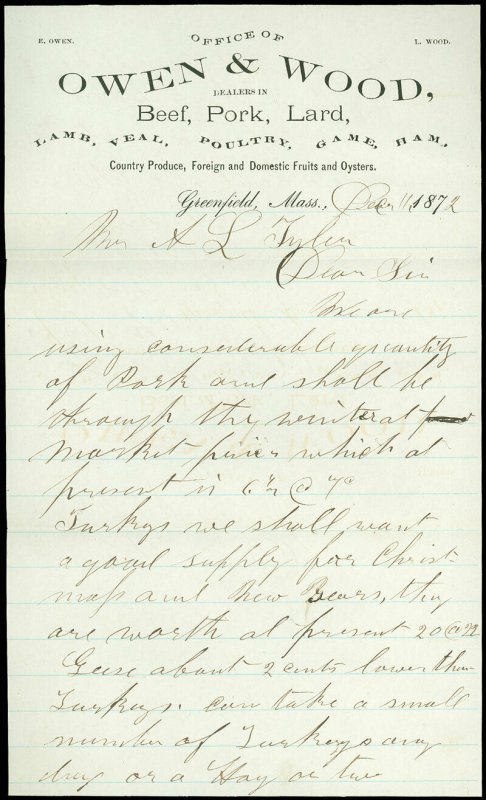 E. OWEN.
OFFICE OF
L. WOOD.
OWEN & WOOD,
DEALERS IN
Beef, Pork, Lard,
LAMB, VEAL, POULTRY, GAME, HAM,
Country Produce, Foreign and Domestic Fruits and Oysters.
Greenfield, Mass., Dec 11, 1872
Mr A L Tyler
Dear Sir
We are
using considerable quantity
of Pork and shall be
through the winter at
market prices which at
present is 6½ @ 7c
Turkeys we shall want
a good supply for Christ-
mas and New Years, they
are worth at present 20 @ 22
Geese about 2 cents lower than
Turkeys. can take a small
number of Turkeys any
day or a Hog or two